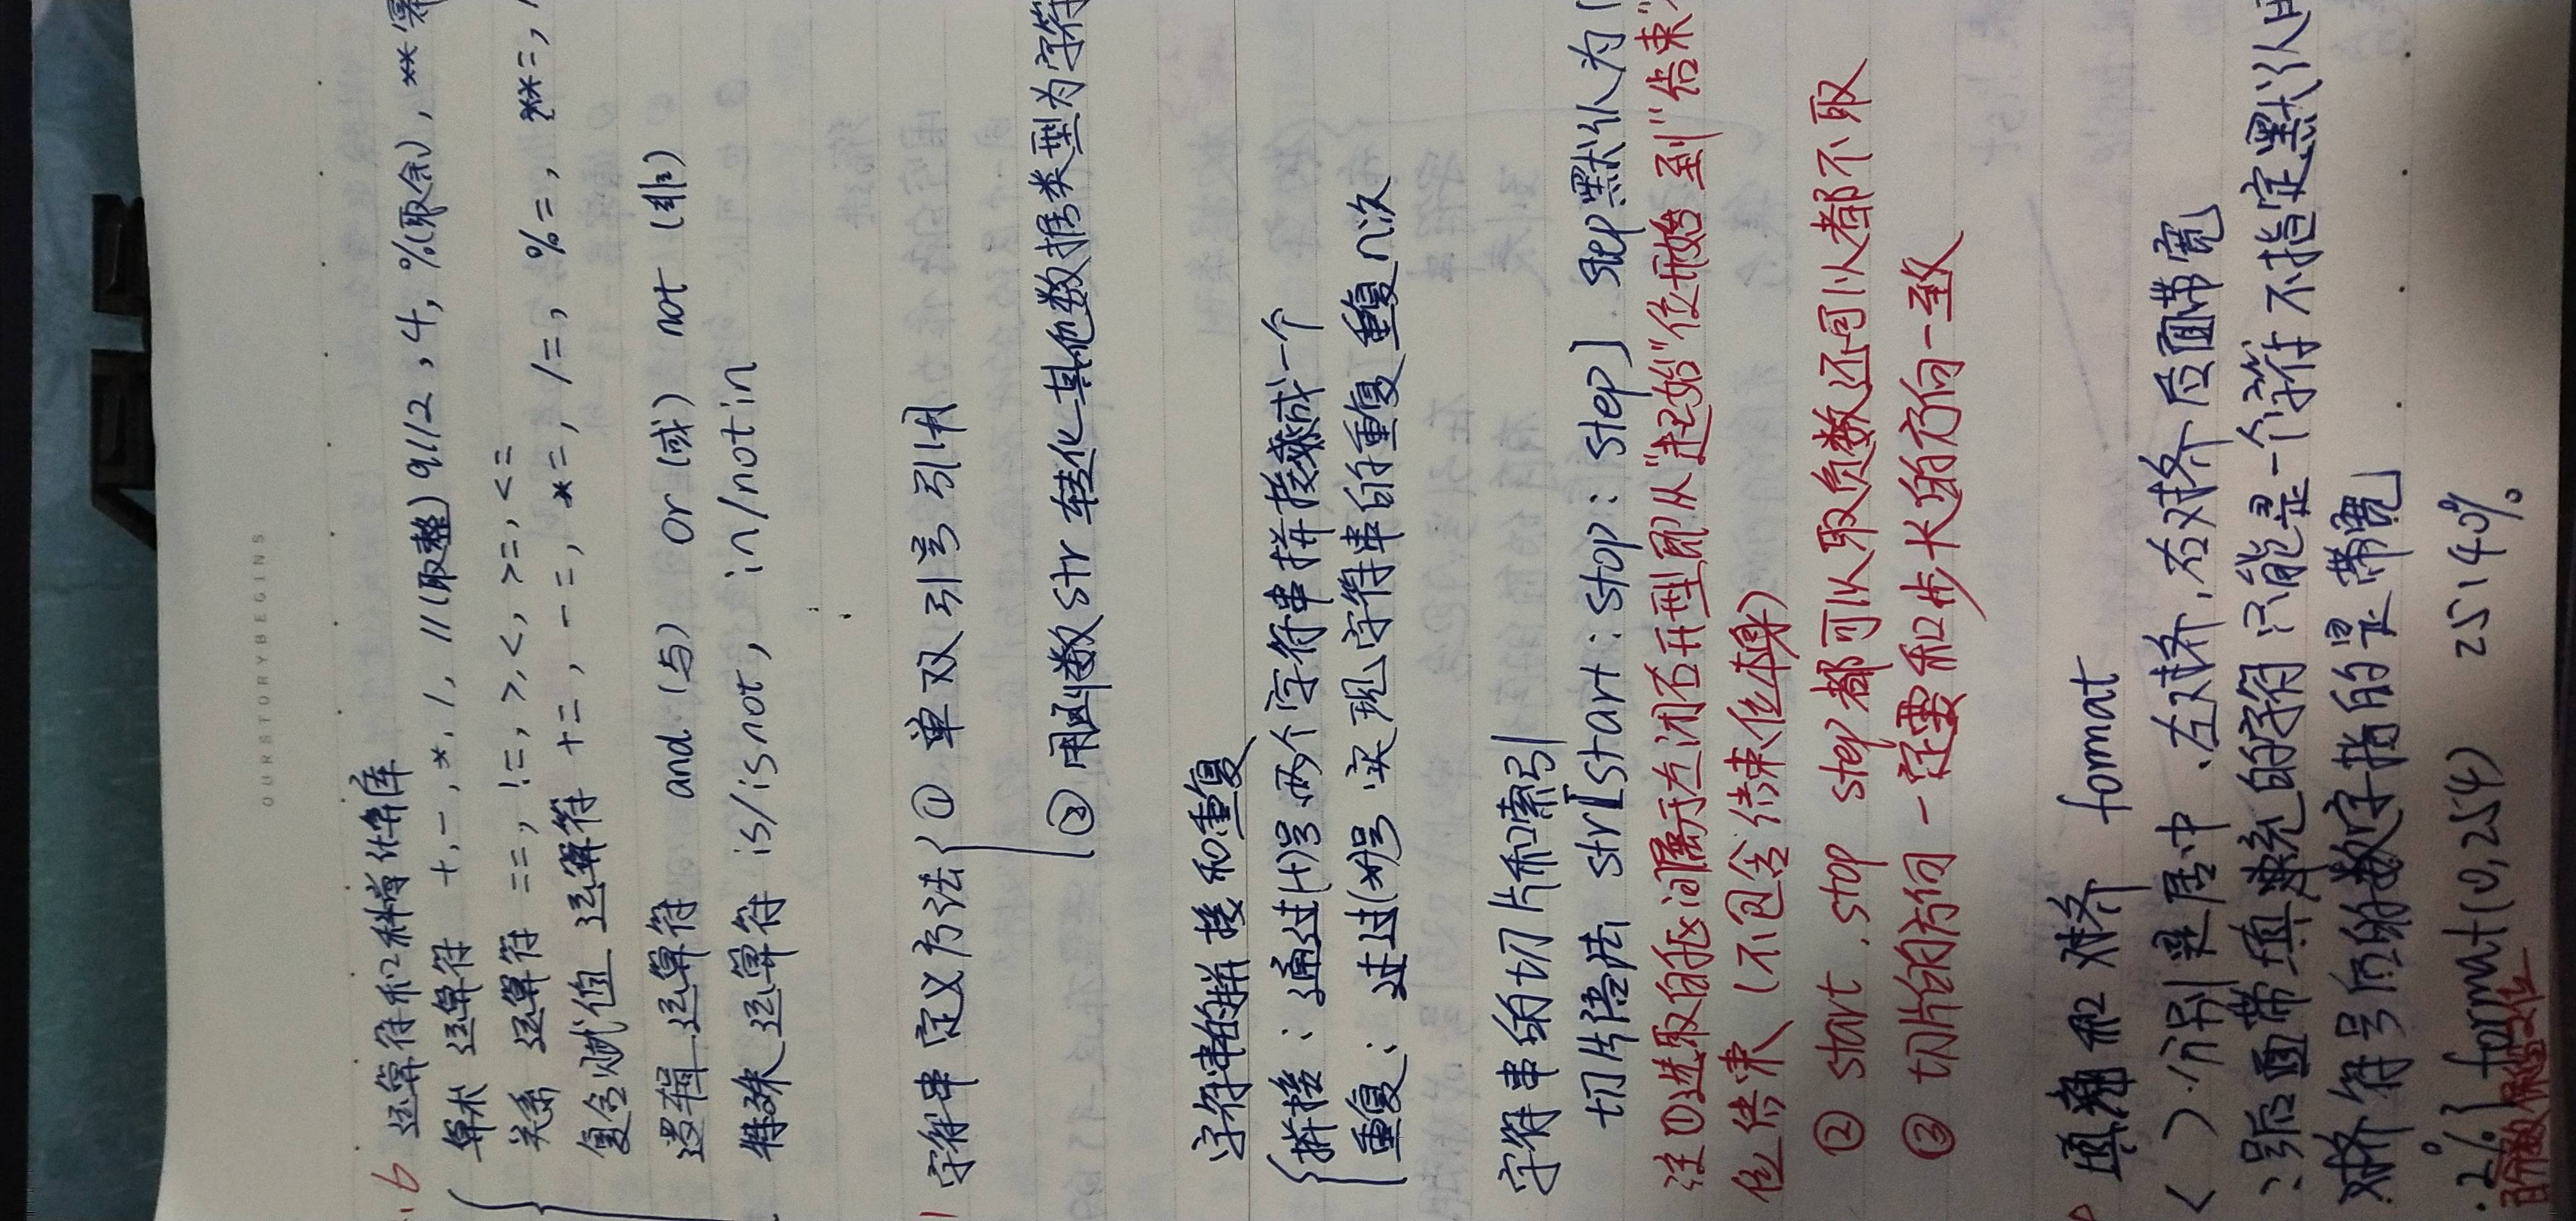 OURSTORYBEGINS
.6 运算符和科学计算库
算术运算符 +,-,*,/,//(取整)9//2,4,%(取余),**幂
关系 运算符 ==,!=,>,<,>=,<=
复合赋值 运算符 +=,-=,*=,/=,%=,**=,
逻辑 运算符 and(与) or(或) not(非)
特殊 运算符 is/isnot, in/notin
字符串 定义方法 ① 单双引号引用
② 用函数str转化其他数据类型为字符
字符串的拼接和重复
拼接:通过(+)号.两个字符串拼接成一个
重复:过过(*)号.实现字符串的重复重复n次
字符串的切片和索引
切片语法 str[start:stop:step] step默认为1
注①进取的区间属于左闭右开型即从"起始"位开始 到"结束"
位结束(不包含结束位本身)
② start.stop step都可以取负数还可以都不取
③ 切片的方向 一定要和步长的方向一致
填充和对齐 format
< > 分别是居中.左对齐,右对齐后面带宽
:号后面带填充的字符只能是一个字符不指定默认
对齐符号后的数字指的是带宽
.2%}format(0,254) 25.40%
百分数保留2位